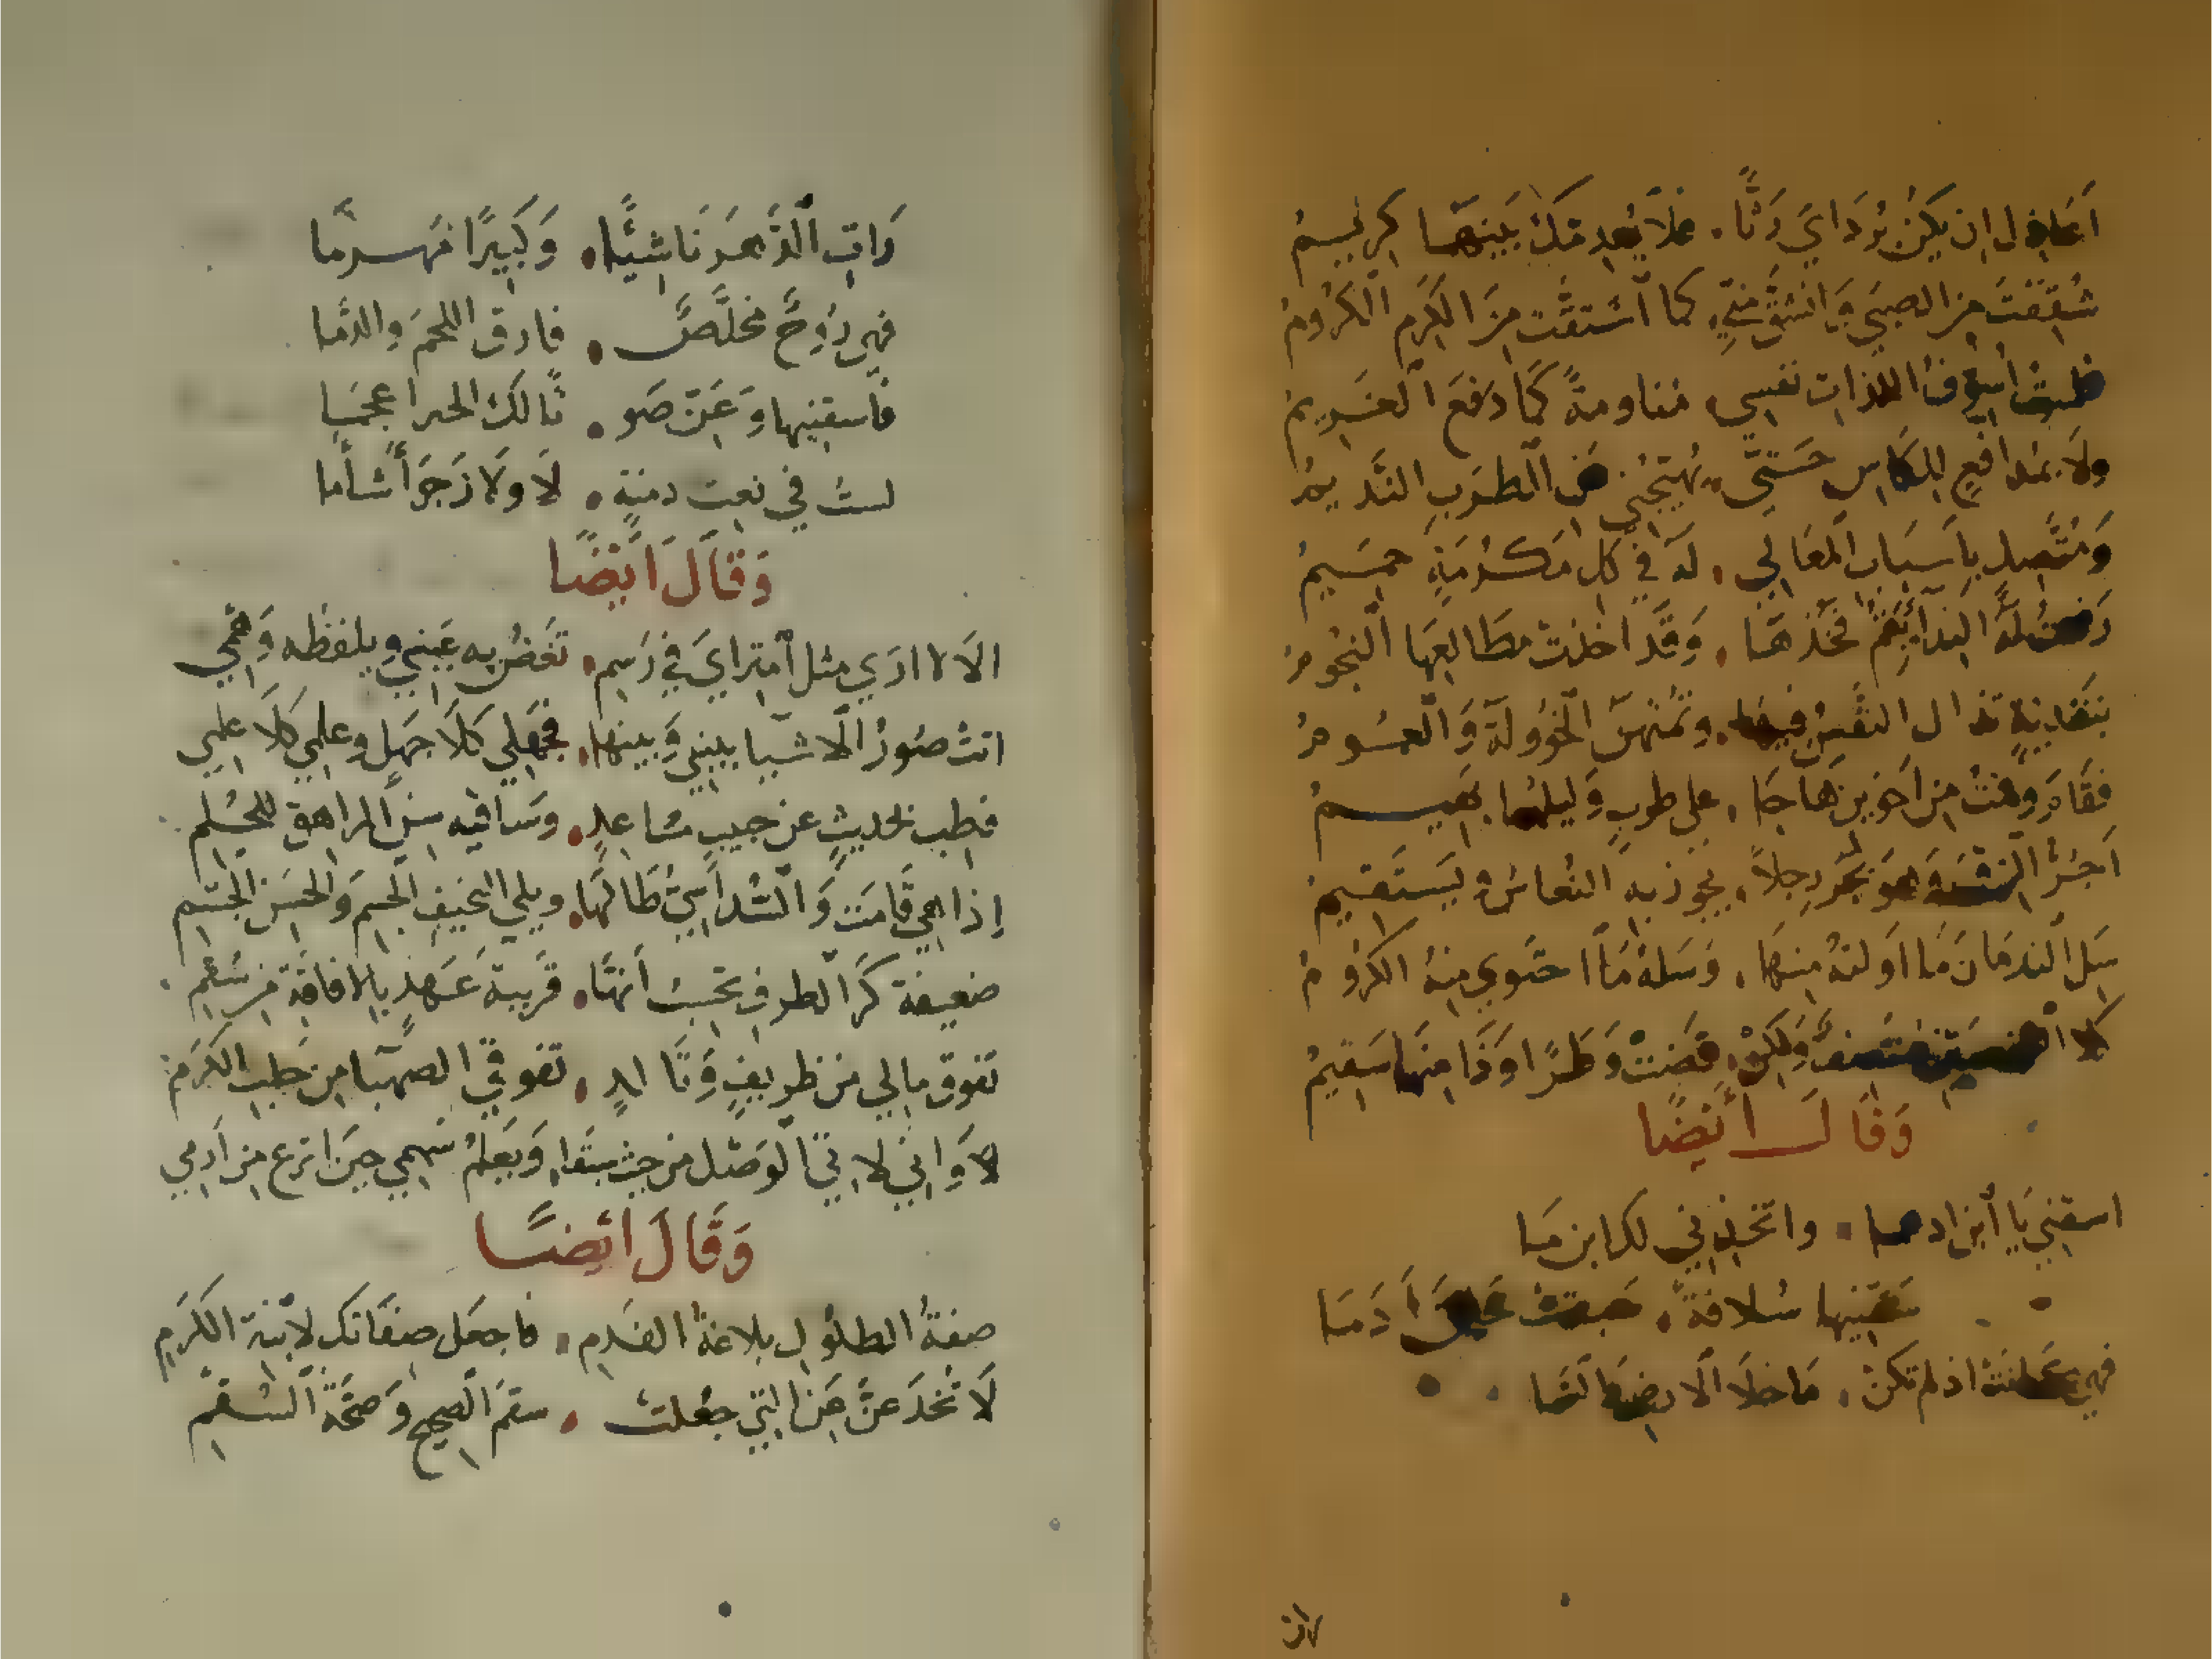 اَعَاذِل ان يكُن بُردَايَ رَثًّا . فلا يُعدِمكَ بَينَهما كريمُ
شُقِقتُ مِن الصِبَى وَانشقَّ مِنّي . كما اَشتقَّت مِنَ الكَرَم الكُرُومُ
فلستُ اُسَوّفُ اللذات نفسِي . مُناومةً كَمَا دَفعَ الغَريمُ
ولَا بمُدافعٍ للكَاسِ حَتّى . يُهَيّجني الطَرَبِ النَديمُ
وَمُتَّصِلٍ باَسبَابِ المَعَالي . لَهُ في كل مَكرُمَةٍ حَميمُ
رَفعتُ لَهُ النِدَا بِقُم فخُذهَا . وَقَد اخذت مطَالعَها النجُومُ
بتَفدِيَةٍ تذال النفسُ فيها . وتُمتهَنُ الخُؤُولَةُ وَالعمُومُ
فقَامَ وقمتُ مِن اخَوينِ هَاجَا . على طربٍ وَليلهُمَا بهيمُ
اَجُرُّ الزقَّ وَهو يجُر رِجلاً . يجُورُ به النُعَاسُ ويَستَقيمُ
سَل الندمَانَ مَا اَولتهُ مِنهَا . وَسَلهُ مَا احتَوى مِنهُ الكرُومُ
كلا وَلَكِن . قضت وَطَرًا وَذَا منها سَقيمُ
وَقَالَ اَيضًا
اسقِني يَا اَبن ادهما . واتخذني لك ابن مَا
سَقّنِيها سُلافةً . سَبقت خَلقَ اَدَمَا
فهي كَانت اذ لم تكن . مَا خلَا الارضَ والسَّمَا
رَاتِ الدَهرَ نَاشِيًا . وَكَبِيرًا مُهَرمَا
فهي رُوحٌ مخلَّصٌ . فارق اللحمَ والدَّمَا
فاسقِنِيها وَغَنِّ صَو . تًا لك الخير اعجمَا
لستُ في نعت دمنةٍ . لَا ولَا زَجرَ اَشاَمَا
وَقَالَ اَيضًا
الَا لا ارَى مثل اَمتِرايَ في رَسم . تَغَصُّ به عَيني ويلفظه وَهمي
اتت صُورُ الاشيا بَيني وَبينها . فجَهلي كلَا جَهلٍ وعلمي كَلَا عِلمِ
فطِب بحَديثٍ عن حبيبٍ مُسَاعِدٍ . وسَاقيه سِن المراهق للحُلم
إذا هي قَامَت وَالسُدَاسِيُّ طَالهَا . وبين النحيف الجِسم وَالحسن الجسم
ضعيفة كَرّ الطرف تحسبُ اَنهَا . قريبة عَهدٍ بالافاقَة من سُقم
تفوّق مالي من طريفٍ وَتَالدٍ . تفوقي الصهبا من حلب الكَرَم
وَاني لاتي الوَصل من حيث يبتغا . وَيَعلمُ سَهمي حين انزع من اَرمي
وَقَالَ اَيضًا
صفة الطلُول بلاغة الفَدم . فاجعَل صفاتك لابنة الكَرَم
لَا تُخدعَنَّ عن التي جُعلت . سقمَ الصحيح وَصحَّة السُقم